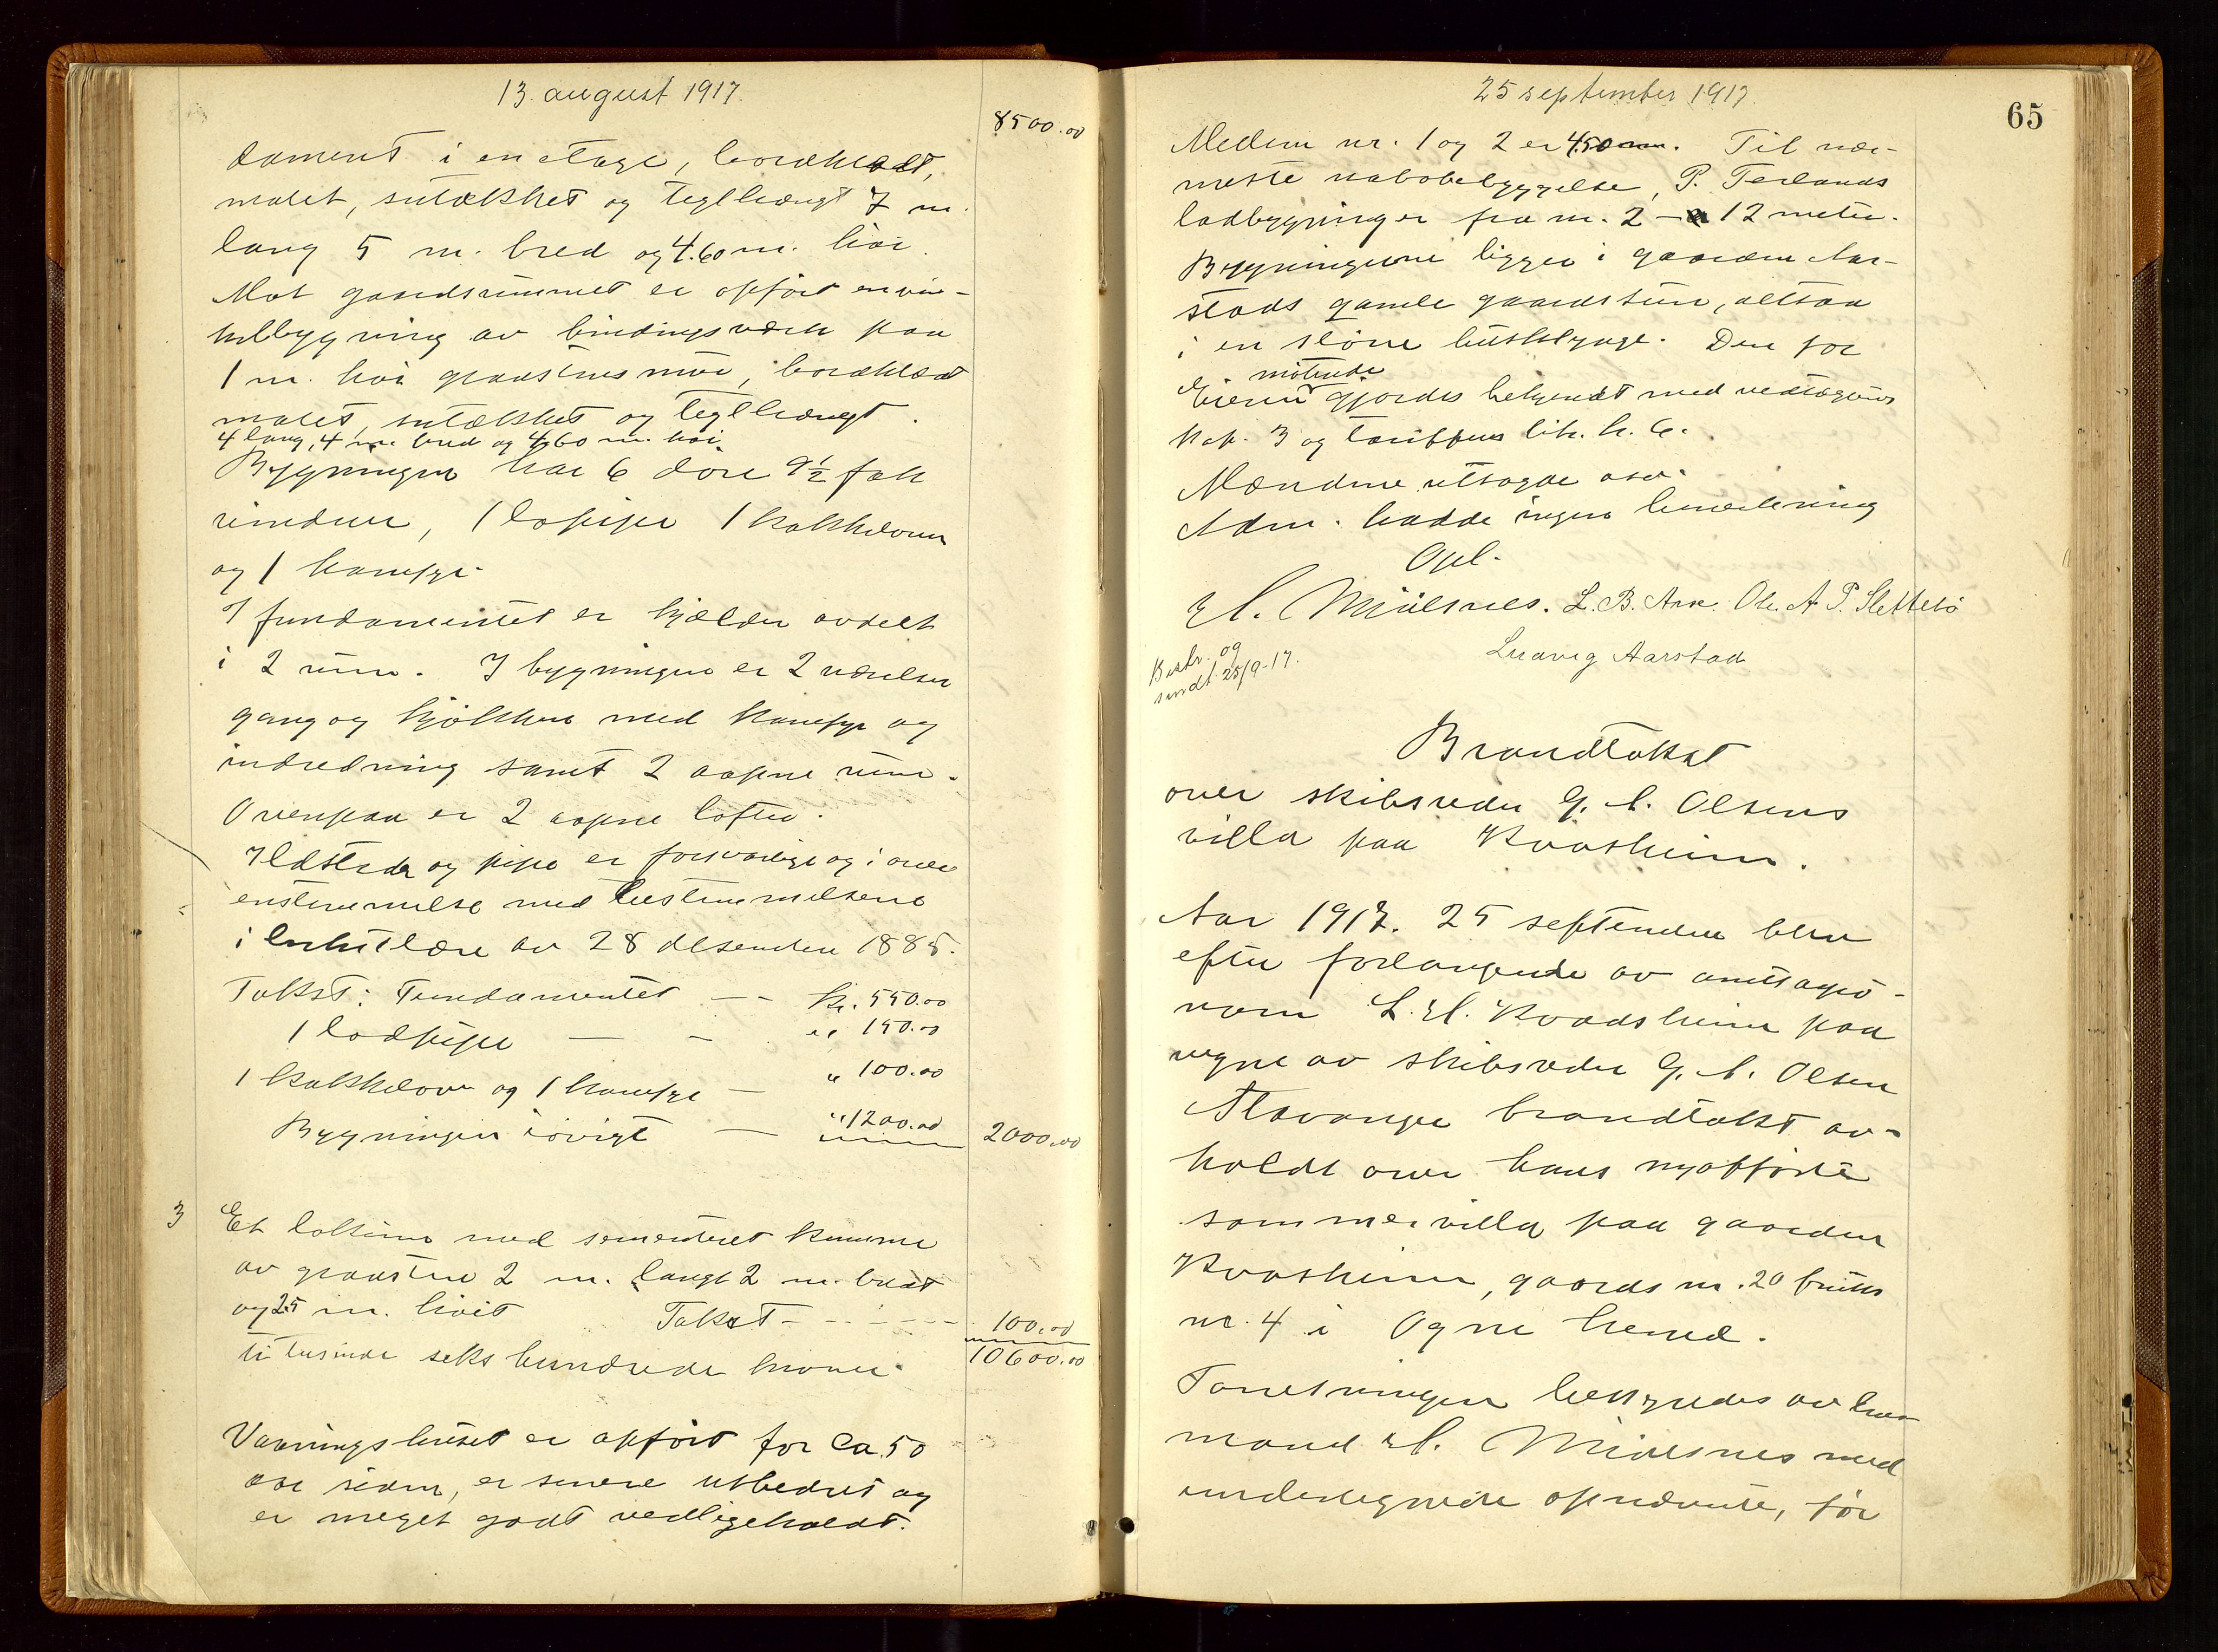 13 august 1917.
8500.00
dament i en etage, bordklædt,
malet, sutækket og teglhængt 7 m.
lang 5 m. bred og 4.60 m. høi.
Mot gaardsrummet er opført en vin-
kelbygning av bindingsverk paa
1 m. høi graastensmur, bordklædt
malet, sutækket og teglhængt.
4 lang, 4 m. bred og 4,60 m. høi
Bygningen har 6 døre 9½ fak
vinduer, 1 lopipe 1 kakkelovn
og 1 komfyr.
I fundamentet er kjælder avdelt
i 2 rum. I bygningen er 2 værelser
gang og kjøkken med komfyr og
indredning samt 2 aapne rum.
Ovenpaa er 2 aapne lofter.
Ildsteder og pipe er forsvarlige og i over
enstemmelse med bestemmelsene
i av 28 desember 1885.
Takst: Fundamentet — - kr. 550.00
1 lodpipe — - " 150.00
1 kakkelovn og 1 komfyr — " 100.00
Bygningen iøvrigt — " 1200.00 2000.00
3 Et lokum med sementeret kumme
av graasten 2 m. langt 2 m. bredt
og 2.5 m. høit Takst - - - - - - 100.00
ti tusinde seks hundrede kroner. 10600.00
Vaaningshuset er opført for ca. 50
aar siden, er senere utbedret og
er meget godt vedligeholdt.
25 september 1917.
65
Mellem nr. 1 og 2 er 4.50 m. Til nær-
meste nabobebyggelse, P. Terlands
ladbygninger fra nr. 2 - 12 meter.
Bygningerne ligger i gaarden Aar-
stads gamle gaardstun, altsaa
i en større husklynge. Den for
møtende
Eieren gjordes bekjendt med vedtægtens
kap. 3 og tariffens lit. h. 6.
Mændene utsagde osv.
Adm. hadde ingen bemerkning
Opl.
H. Mjølsnes. L. B. Aase. Ole A. P. Slettebø
Ludvig Aarstad
Beskr. og
sendt 25/9-17.
Brandtakst
over skibsreder G. A. Olsens
villa paa Kvasheim.
Aar 1917. 25 september blev
efter forlangende av amtsagro-
nom L. H. Kvadsheim paa
vegne av skibsreder G. A. Olsen
Stavanger brandtakst av-
holdt over hans nyopførte
sommervilla paa gaarden
Kvasheim, gaards nr. 20 bruks
nr. 4 i Ogne herred.
Forretningen bestyredes av lens
mand H. Mjølsnes med
undertegnede opnævnte, før